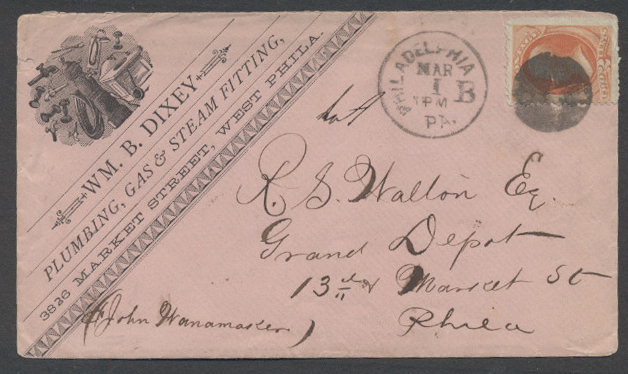 WM. B. DIXEY,
PLUMBING, GAS & STEAM FITTING,
3826 MARKET STREET, WEST PHILA.
PHILADELPHIA
MAR
1 B
1PM
PA.
R. S. Walton Eq.
Grand Depot
13th & Market St
Phila
(John Wanamaker)